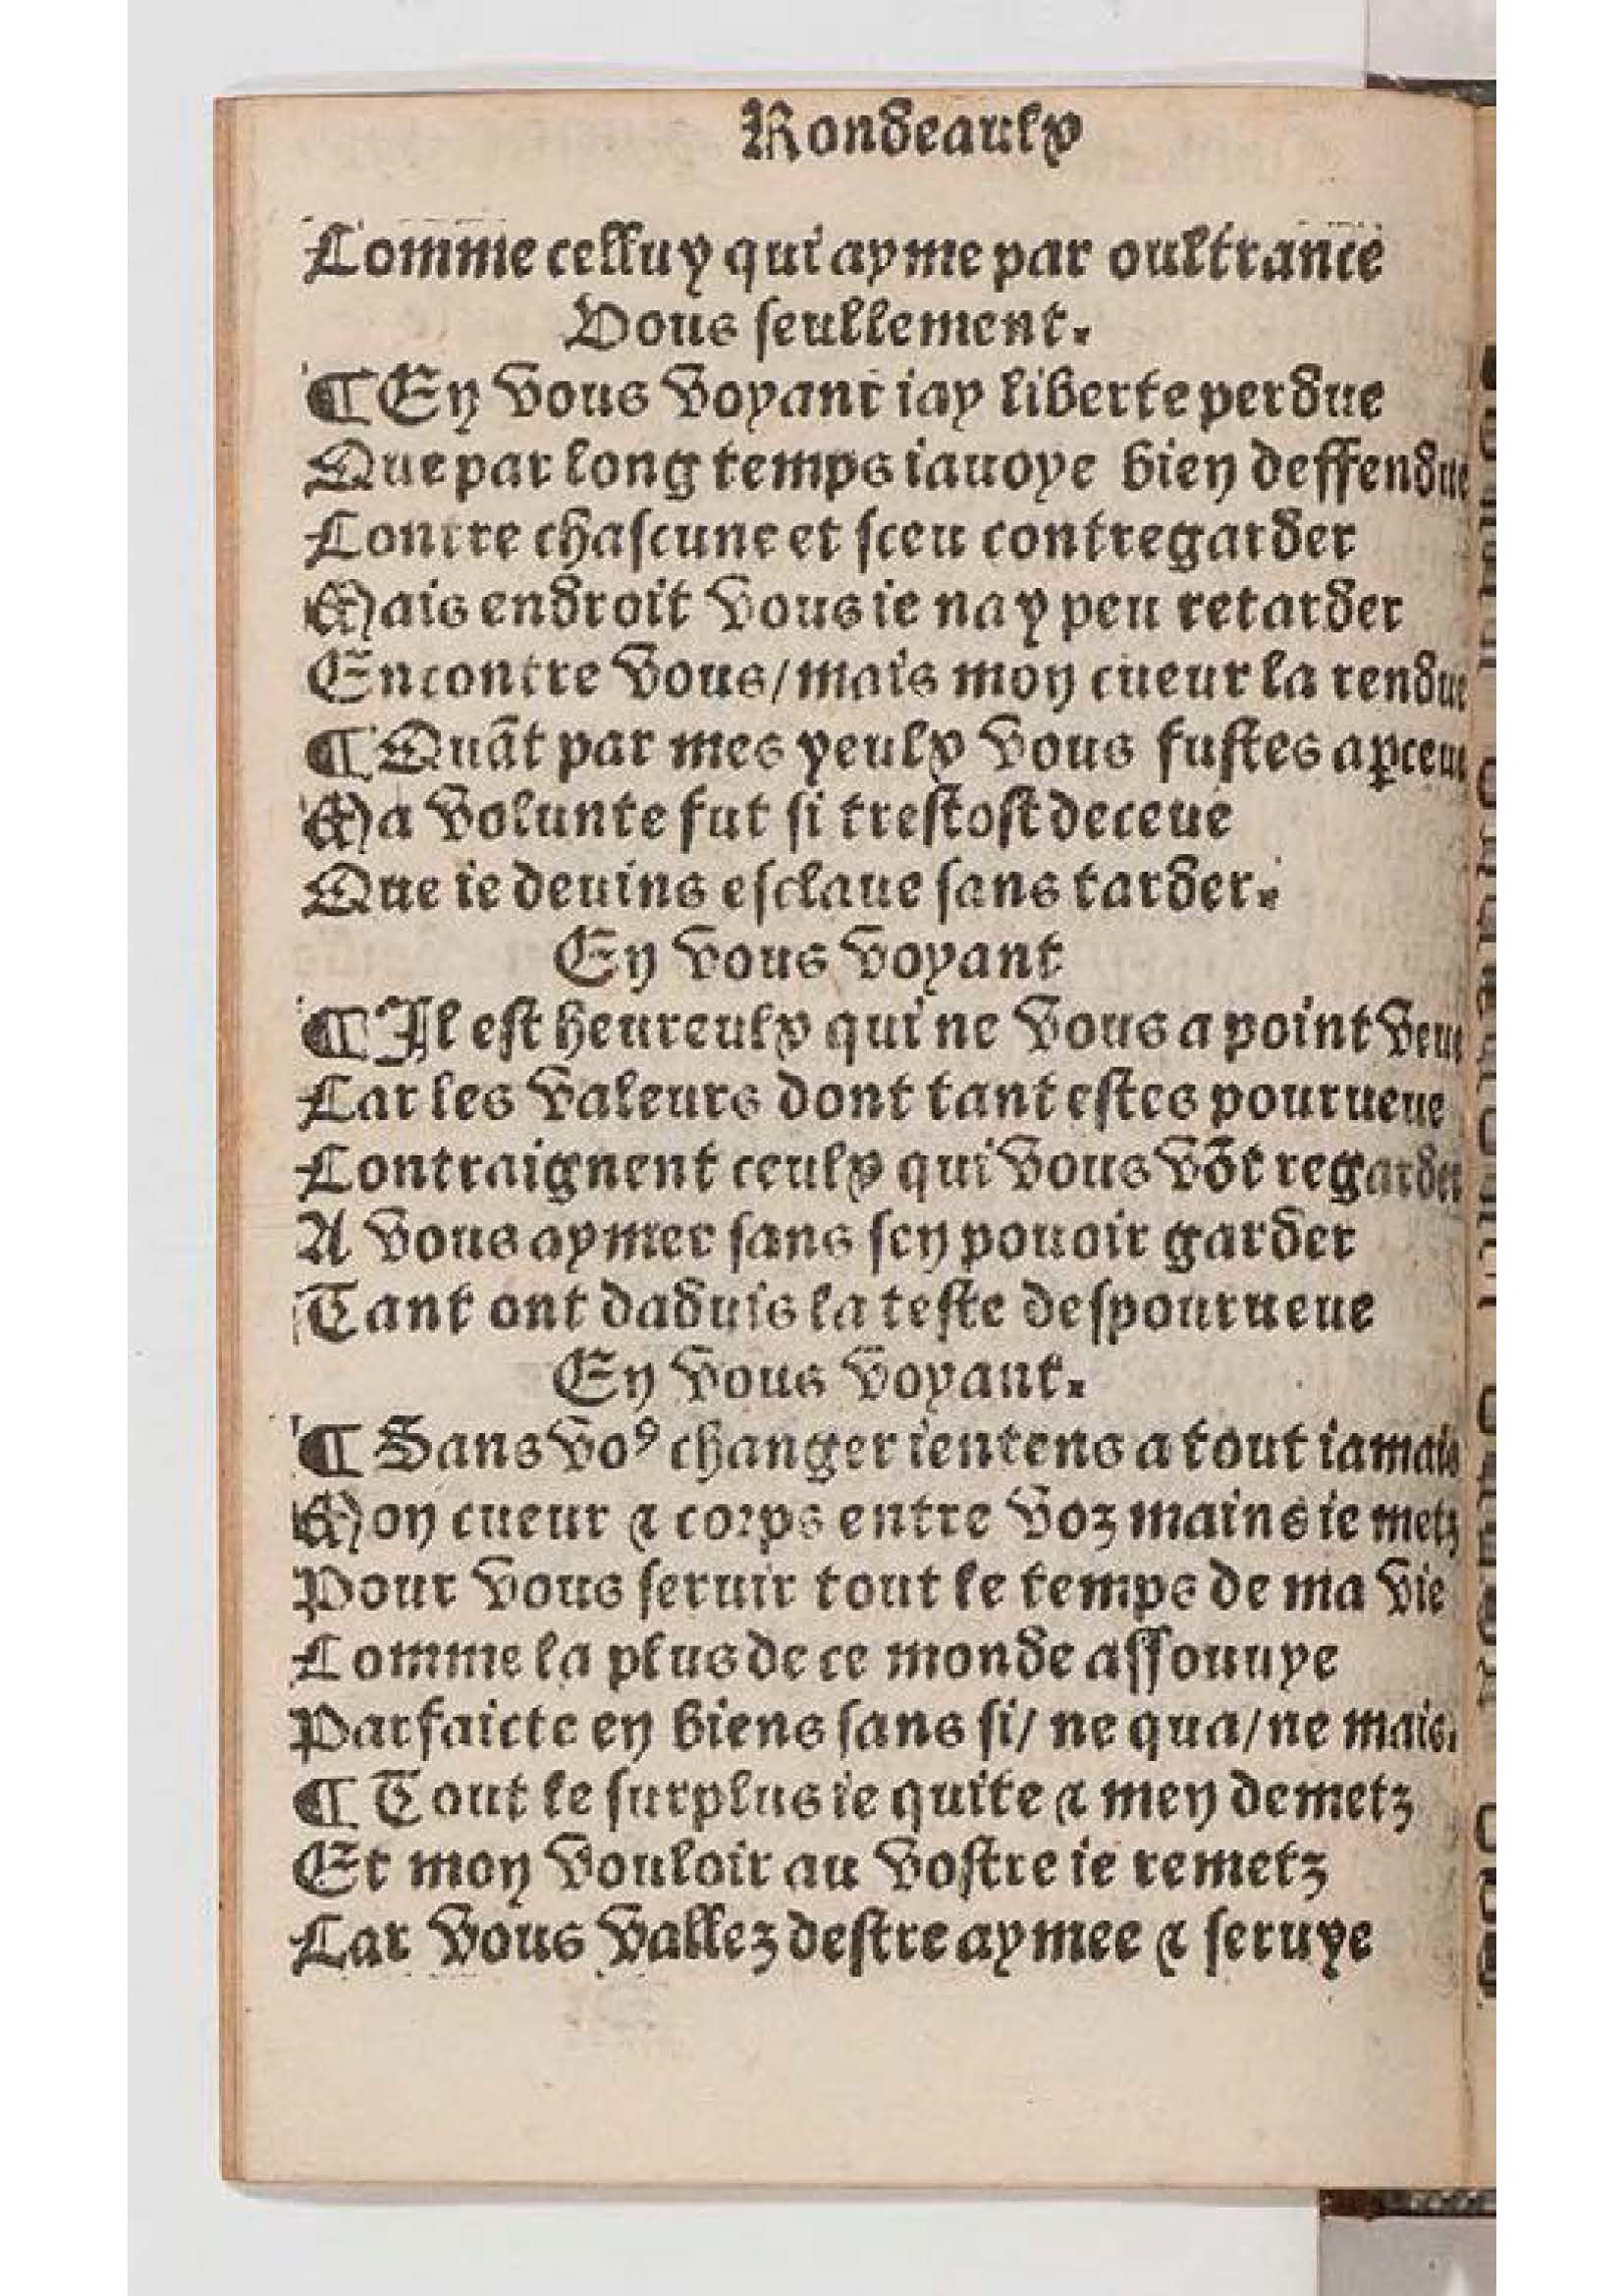 Rondeaulx
Comme celluy qui ayme par oultrance
Vous seullement.
¶ En vous voyant iay liberte perdue
Que par long temps iauoye bien deffendue
Contre chascune et sceu contregarder
Mais endroit vous ie nay peu retarder
Encontre vous/mais mon cueur la rendue
¶ Quãt par mes yeulx vous fustes aꝑceue
Ma volunte fut si trestost deceue
Que ie deuins esclaue sans tarder.
En vous voyant
¶ Il est heureulx qui ne vous a point veue
Car les valeurs dont tant estes pourueue
Contraignent ceulx qui vous võt regarder
A vous aymer sans sen pouoir garder
Tant ont daduis la teste despourueue
En vous voyant.
¶ Sans voꝰ changer ientens a tout iamais
Mon cueur & corps entre voz mains ie metz
Pour vous seruir tout le temps de ma vie
Comme la plus de ce monde assouuye
Parfaicte en biens sans si/ ne qua/ne mais.
¶ Tout le surplus ie quite & men demetz
Et mon vouloir au vostre ie remetz
Car vous vallez destre aymee & seruye